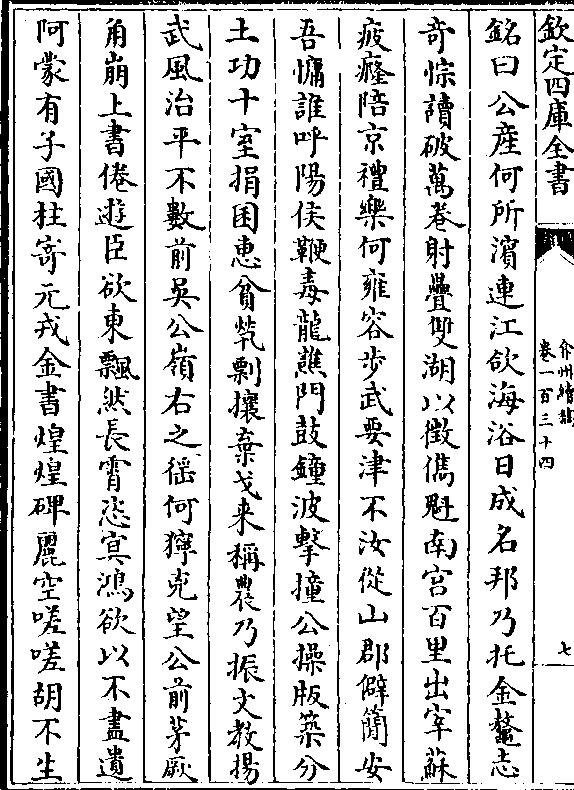 欽定四庫全書
卷一百三十四
七
銘曰公産何所濵連江欲海浴日成名邦乃托金鼇志
竒悰讀破萬卷射疊雙湖以徵儁魁南宫百里出宰蘇
疲癃陪京禮樂何雍容步武要津不汝從山郡僻簡安
吾慵誰呼陽侯鞭毒龍譙門鼓鐘波撃撞公操版築分
土功十室捐囷惠貧煢剽攘棄戈来稱農乃振文教揚
武風治平不數前吳公嶺右之徭何獰克望公前茅厥
角崩上書倦遊臣欲東飄然長霄恣冥鴻欲以不盡遺
阿蒙有子國柱寄元戎金書煌煌碑麗空嗟嗟胡不生